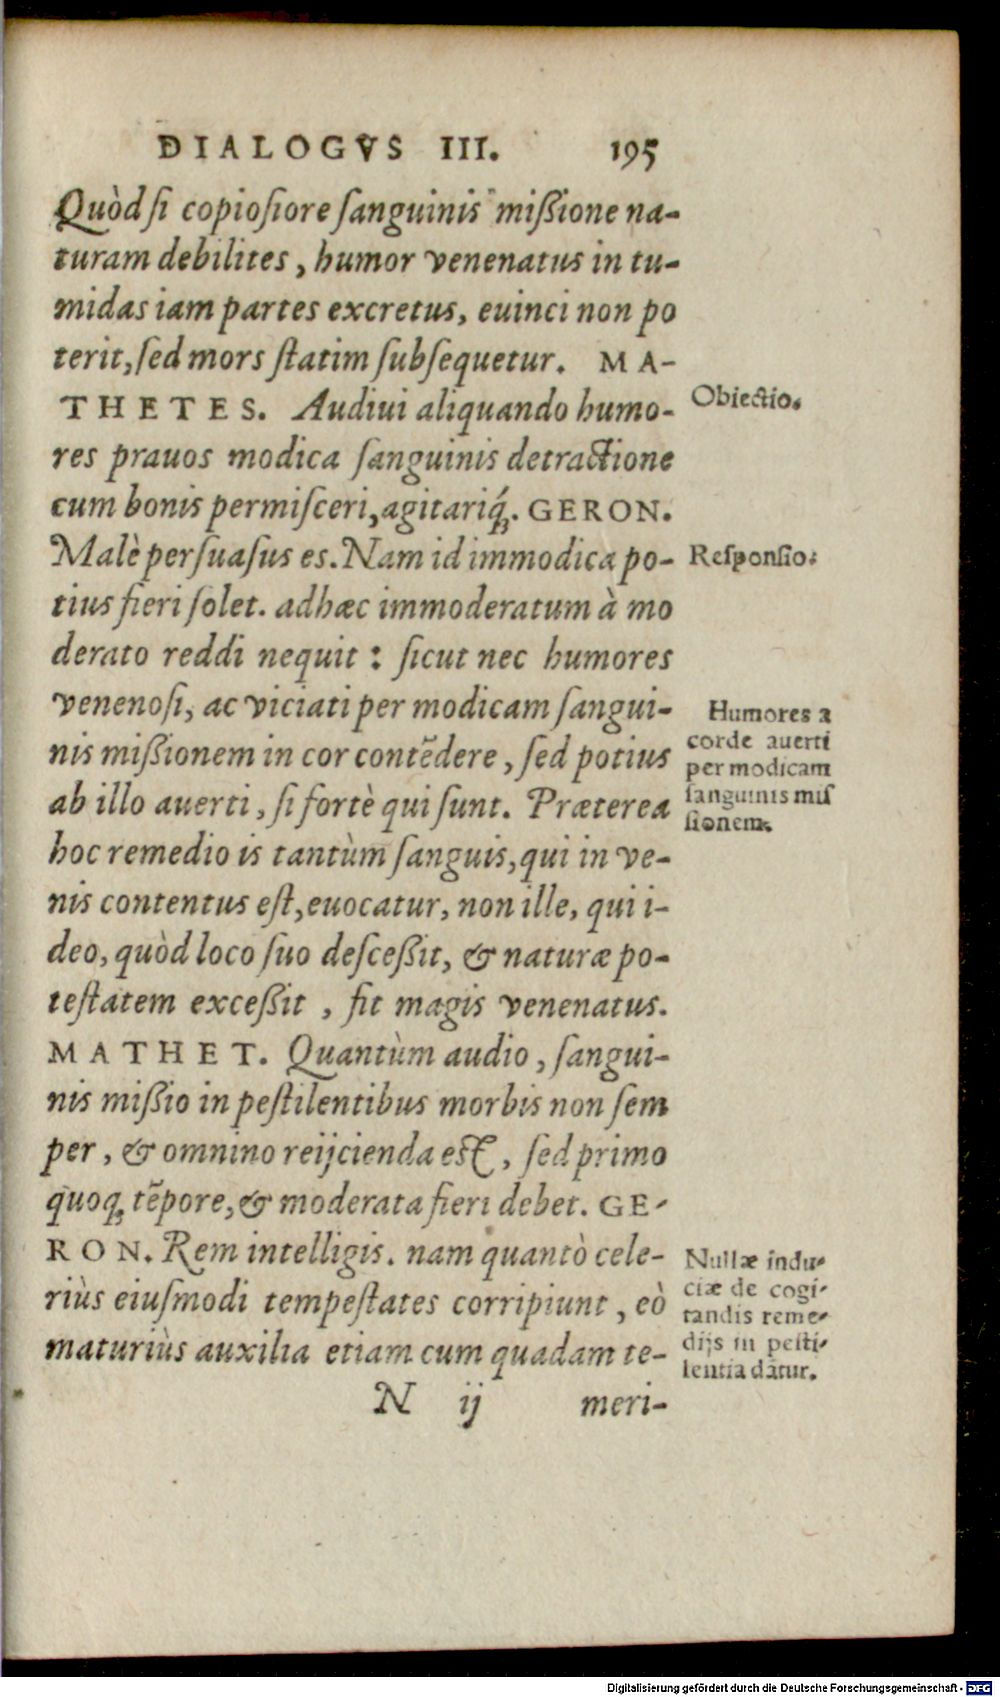 DIALOGVS III. 195
Quòd ſi copioſiore ſanguinis miſſione na-
turam debilites, humor venenatus in tu-
midas iam partes excretus, euinci non po
terit, ſed mors ſtatim ſubſequetur. MA-
THETES. Audiui aliquando humo-
Obiectio.
res prauos modica ſanguinis detractione
cum bonis permiſceri, agitariq́;. GERON.
Malè perſuaſus es. Nam id immodica po-
Reſponſio.
tius fieri ſolet. adhæc immoderatum à mo
derato reddi nequit: ſicut nec humores
venenoſi, ac viciati per modicam ſangui-
nis miſſionem in cor contēdere, ſed potius
ab illo auerti, ſi fortè qui ſunt. Præterea
Humores a
corde auerti
per modicam
ſanguinis miſ
ſionem.
hoc remedio is tantùm ſanguis, qui in ve-
nis contentus eſt, euocatur, non ille, qui i-
deo, quòd loco ſuo deſceſſit, & naturæ po-
teſtatem exceſſit, fit magis venenatus.
MATHET. Quantùm audio, ſangui-
nis miſſio in peſtilentibus morbis non ſem
per, & omnino reijcienda eſt, ſed primo
quoq; tēpore, & moderata fieri debet. GE-
RON. Rem intelligis. nam quantò cele-
riùs eiuſmodi tempeſtates corripiunt, eò
maturiùs auxilia etiam cum quadam te-
Nullæ indu-
ciæ de cogi-
tandis reme-
dijs in peſti-
lentia dātur.
N ij meri-
Digitalisierung gefördert durch die Deutsche Forschungsgemeinschaft - DFG